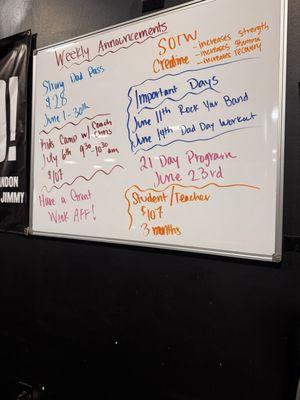 Weekly Announcements
SOTW
Creatine
- increases strength
- increases stamina
- increases recovery
Strong Dad Pass
$28
June 1-30th
Important Days
June 11th Rock Yar Band
June 14th Dad Day Workout
Kids Camp w/ Coach
July 6th 9:30-10:30
am
$107
21 Day Program
June 23rd
Have a Great
Week AFF!
Student/Teacher
$107
3 months
O!
NDON
JIMMY